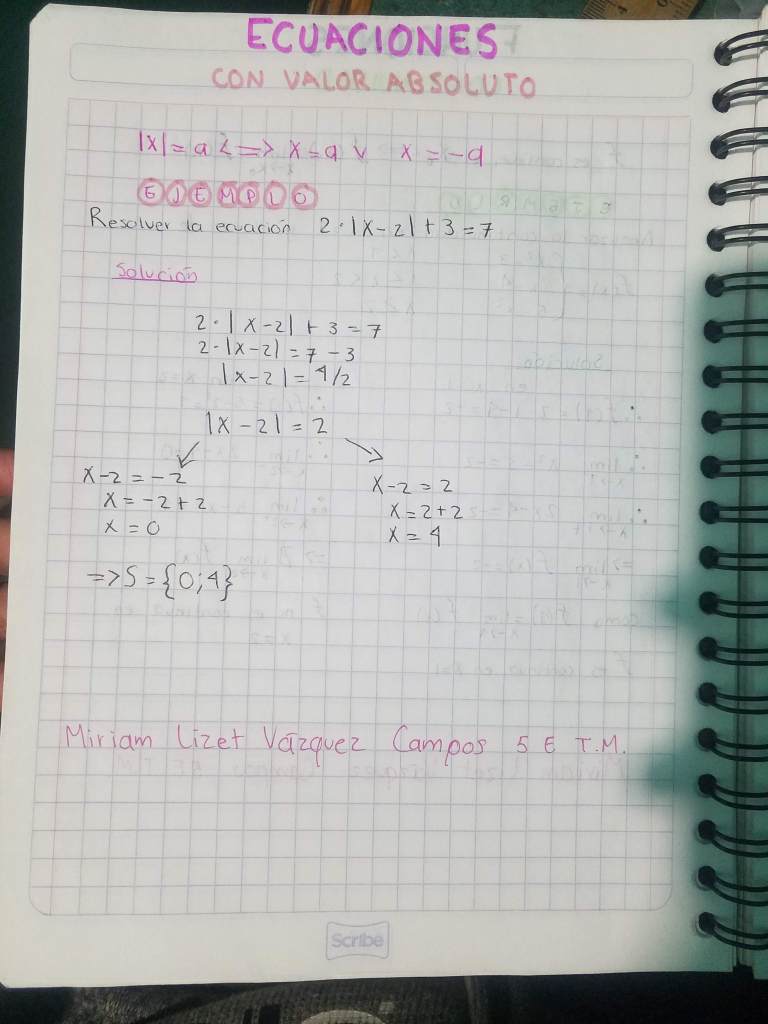 ECUACIONES
CON VALOR ABSOLUTO
|x| = a <=> x = a v x = -a
EJEMPLO
Resolver la ecuación 2·|x-2|+3=7
Solución
2·|x-2|+3=7
2·|x-2|=7-3
|x-2|=4/2
|x-2|=2
x-2=-2 x-2=2
x=-2+2 x=2+2
x=0 x=4
=>S={0;4}
Miriam Lizet Vázquez Campos 5 E T.M.
Scribe